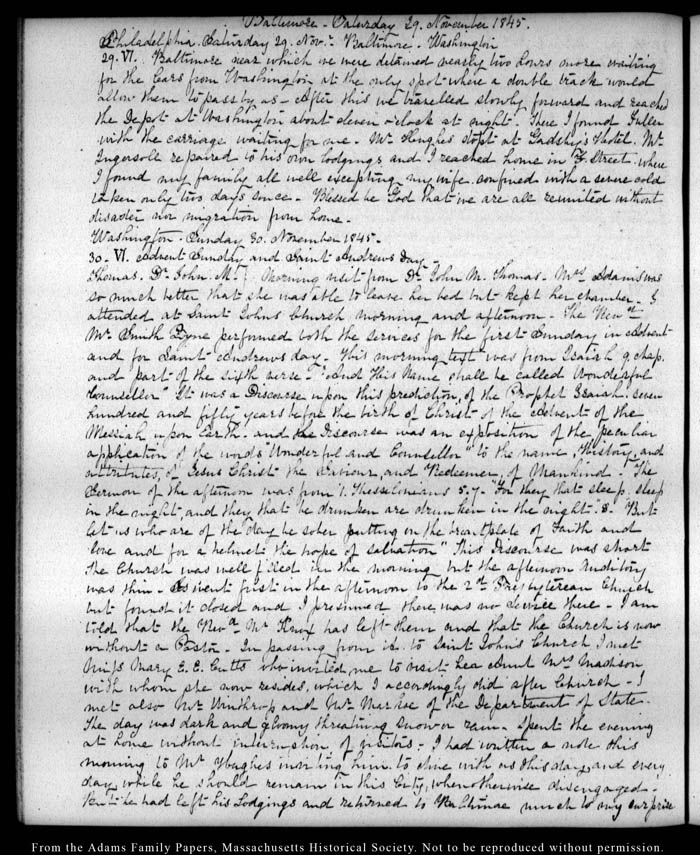 Baltimore - Saturday 29. November 1845.
Philadelphia. Saturday 29. Novr. Baltimore. Washington
29. VI. Baltimore near which we were detained nearly two hours more waiting
for the Cars from Washington at the only spot where a double track would
allow them to pass by us - After this we travelled slowly forward and reached
the Depot at Washington about eleven o'clock at night. There I found Fuller
with the carriage waiting for me. Mr Hughes stopt at Gadsby's Hotel. Mr
Ingersoll repaired to his own lodgings and I reached home in F. Street. where
I found my family all well excepting my wife confined with a severe cold
taken only two days since. Blessed be God that we are all reunited without
disaster nor migration from home.
Washington. Sunday 30. November 1845.
30. VI. Advent Sunday and Saint Andrews day
Thomas. Dr John. M.} Morning visit from Dr John M. Thomas. Mrs Adams was
so much better that she was able to leave her bed but kept her chamber. I
attended at Saint Johns Church morning and afternoon. The Revd
Mr Smith Pyne performed both the services for the first Sunday in Advent
and for Saint Andrews day. His morning text was from Isaiah 9 chap.
and part of the sixth verse. "And His Name shall be called Wonderful
Counsellor" It was a Discourse upon this prediction, of the Prophet Isaiah. seven
hundred and fifty years before the birth of Christ of the Advent of the
Messiah upon Earth. and the Discourse was an exposition of the peculiar
application of the words "Wonderful and Counsellor" to the name, History, and
attributes, of Jesus Christ the Saviour, and Redeemer, of Mankind - The
Sermon of the afternoon was from 1. Thessalonians 5.7. "For they that sleep. sleep
in the night, and they that be drunken are drunken in the night. 8. But
let us who are of the day be sober putting on the breastplate of Faith and
love and for a helmet the hope of salvation" This Discourse was short
The Church was well filled in the morning but the afternoon Auditory
was thin - I went first in the afternoon to the 2d Presbyterean Church
but found it closed and I presumed there was no service there - I am
told that the Revd Mr Knox has left them and that the Church is now
without a Pastor. In passing from it to Saint John's Church I met
Miss Mary E. E. Cutts who invited me to visit her Aunt Mrs Madison
with whom she now resides, which I accordingly did after Church - I
met also Mr Winthrop and Mr Markoe of the Department of State.
The day was dark and gloomy threatning snow or rain - Spent the evening
at home without interruption of visitors - I had written a note this
morning to Mr Hughes inviting him to dine with us this day, and every
day while he should remain in this City, when otherwise disengaged -
But he had left his Lodgings and returned to Baltimore much to my surprise
From the Adams Family Papers, Massachusetts Historical Society. Not to be reproduced without permission.